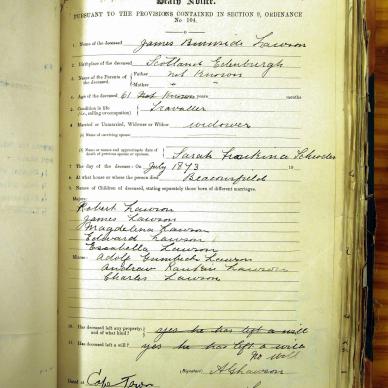 Death Notice.
PURSUANT TO THE PROVISIONS CONTAINED IN SECTION 9, ORDINANCE
No 104.
1. Name of the deceased James Burnside Lawson
2. Birthplace of the deceased Scotland Edinburgh
3. Names of the Parents of the deceased
Father not Known
Mother " "
4. Age of the deceased 61 Not Known years months
5. Condition in life (i.e., calling or occupation) Traveller
6. Married or Unmarried, Widower or Widow widower
(a) Name of surviving spouse
(b) Name or names and approximate date of death of previous spouse or spouses. Sarah
7. The day of the decease: On July 1893 18
8. At what house or where the person died Beaconsfield
9. Names of Children of deceased, stating separately those born of different marriages.
Majors:
Robert Lawson
James Lawson
Magdelina Lawson
Edward Lawson
Essabella Lawson
Minors: Adolf Lawson
Andrew Lawson
Charles Lawson
10. Has deceased left any property; and of what kind? yes he has left a will
11. Has deceased left a will? yes he has left a will
no will
(Signature) Lawson
Dated at Cape Town